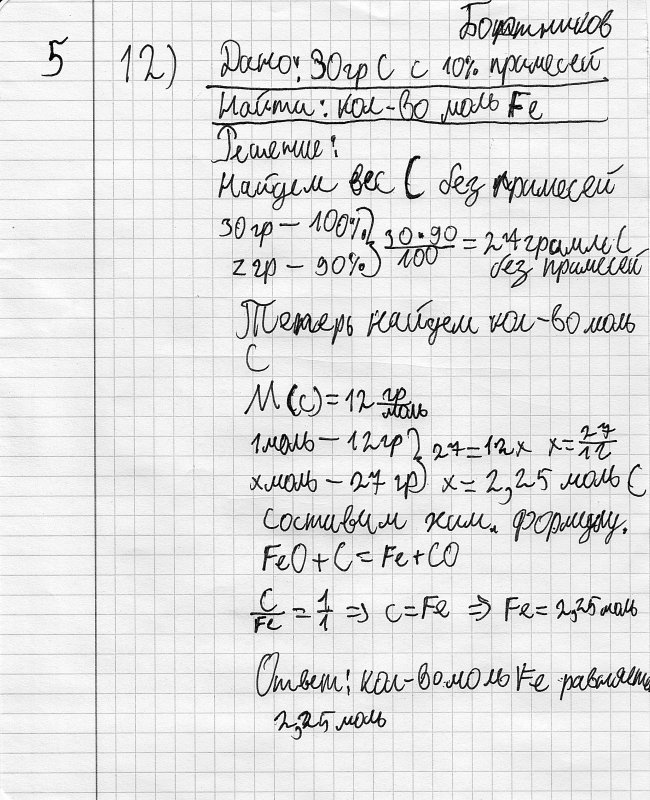 Бортников
5 12) Дано: 30гр С с 10% примесей
Найти: кол-во моль Fe
Решение:
Найдем вес С без примесей
30гр – 100%
zгр – 90%
30·90/100 = 27грамм С
без примесей
Теперь найдем кол-во моль
С
М(С)=12 гр/моль
1моль – 12гр
хмоль – 27гр
27=12х х=27/12
х=2,25 моль С
Составим хим. формулу.
FeO+C=Fe+CO
C/Fe = 1/1 => C=Fe => Fe=2,25моль
Ответ: кол-во моль Fe равляется
2,25 моль